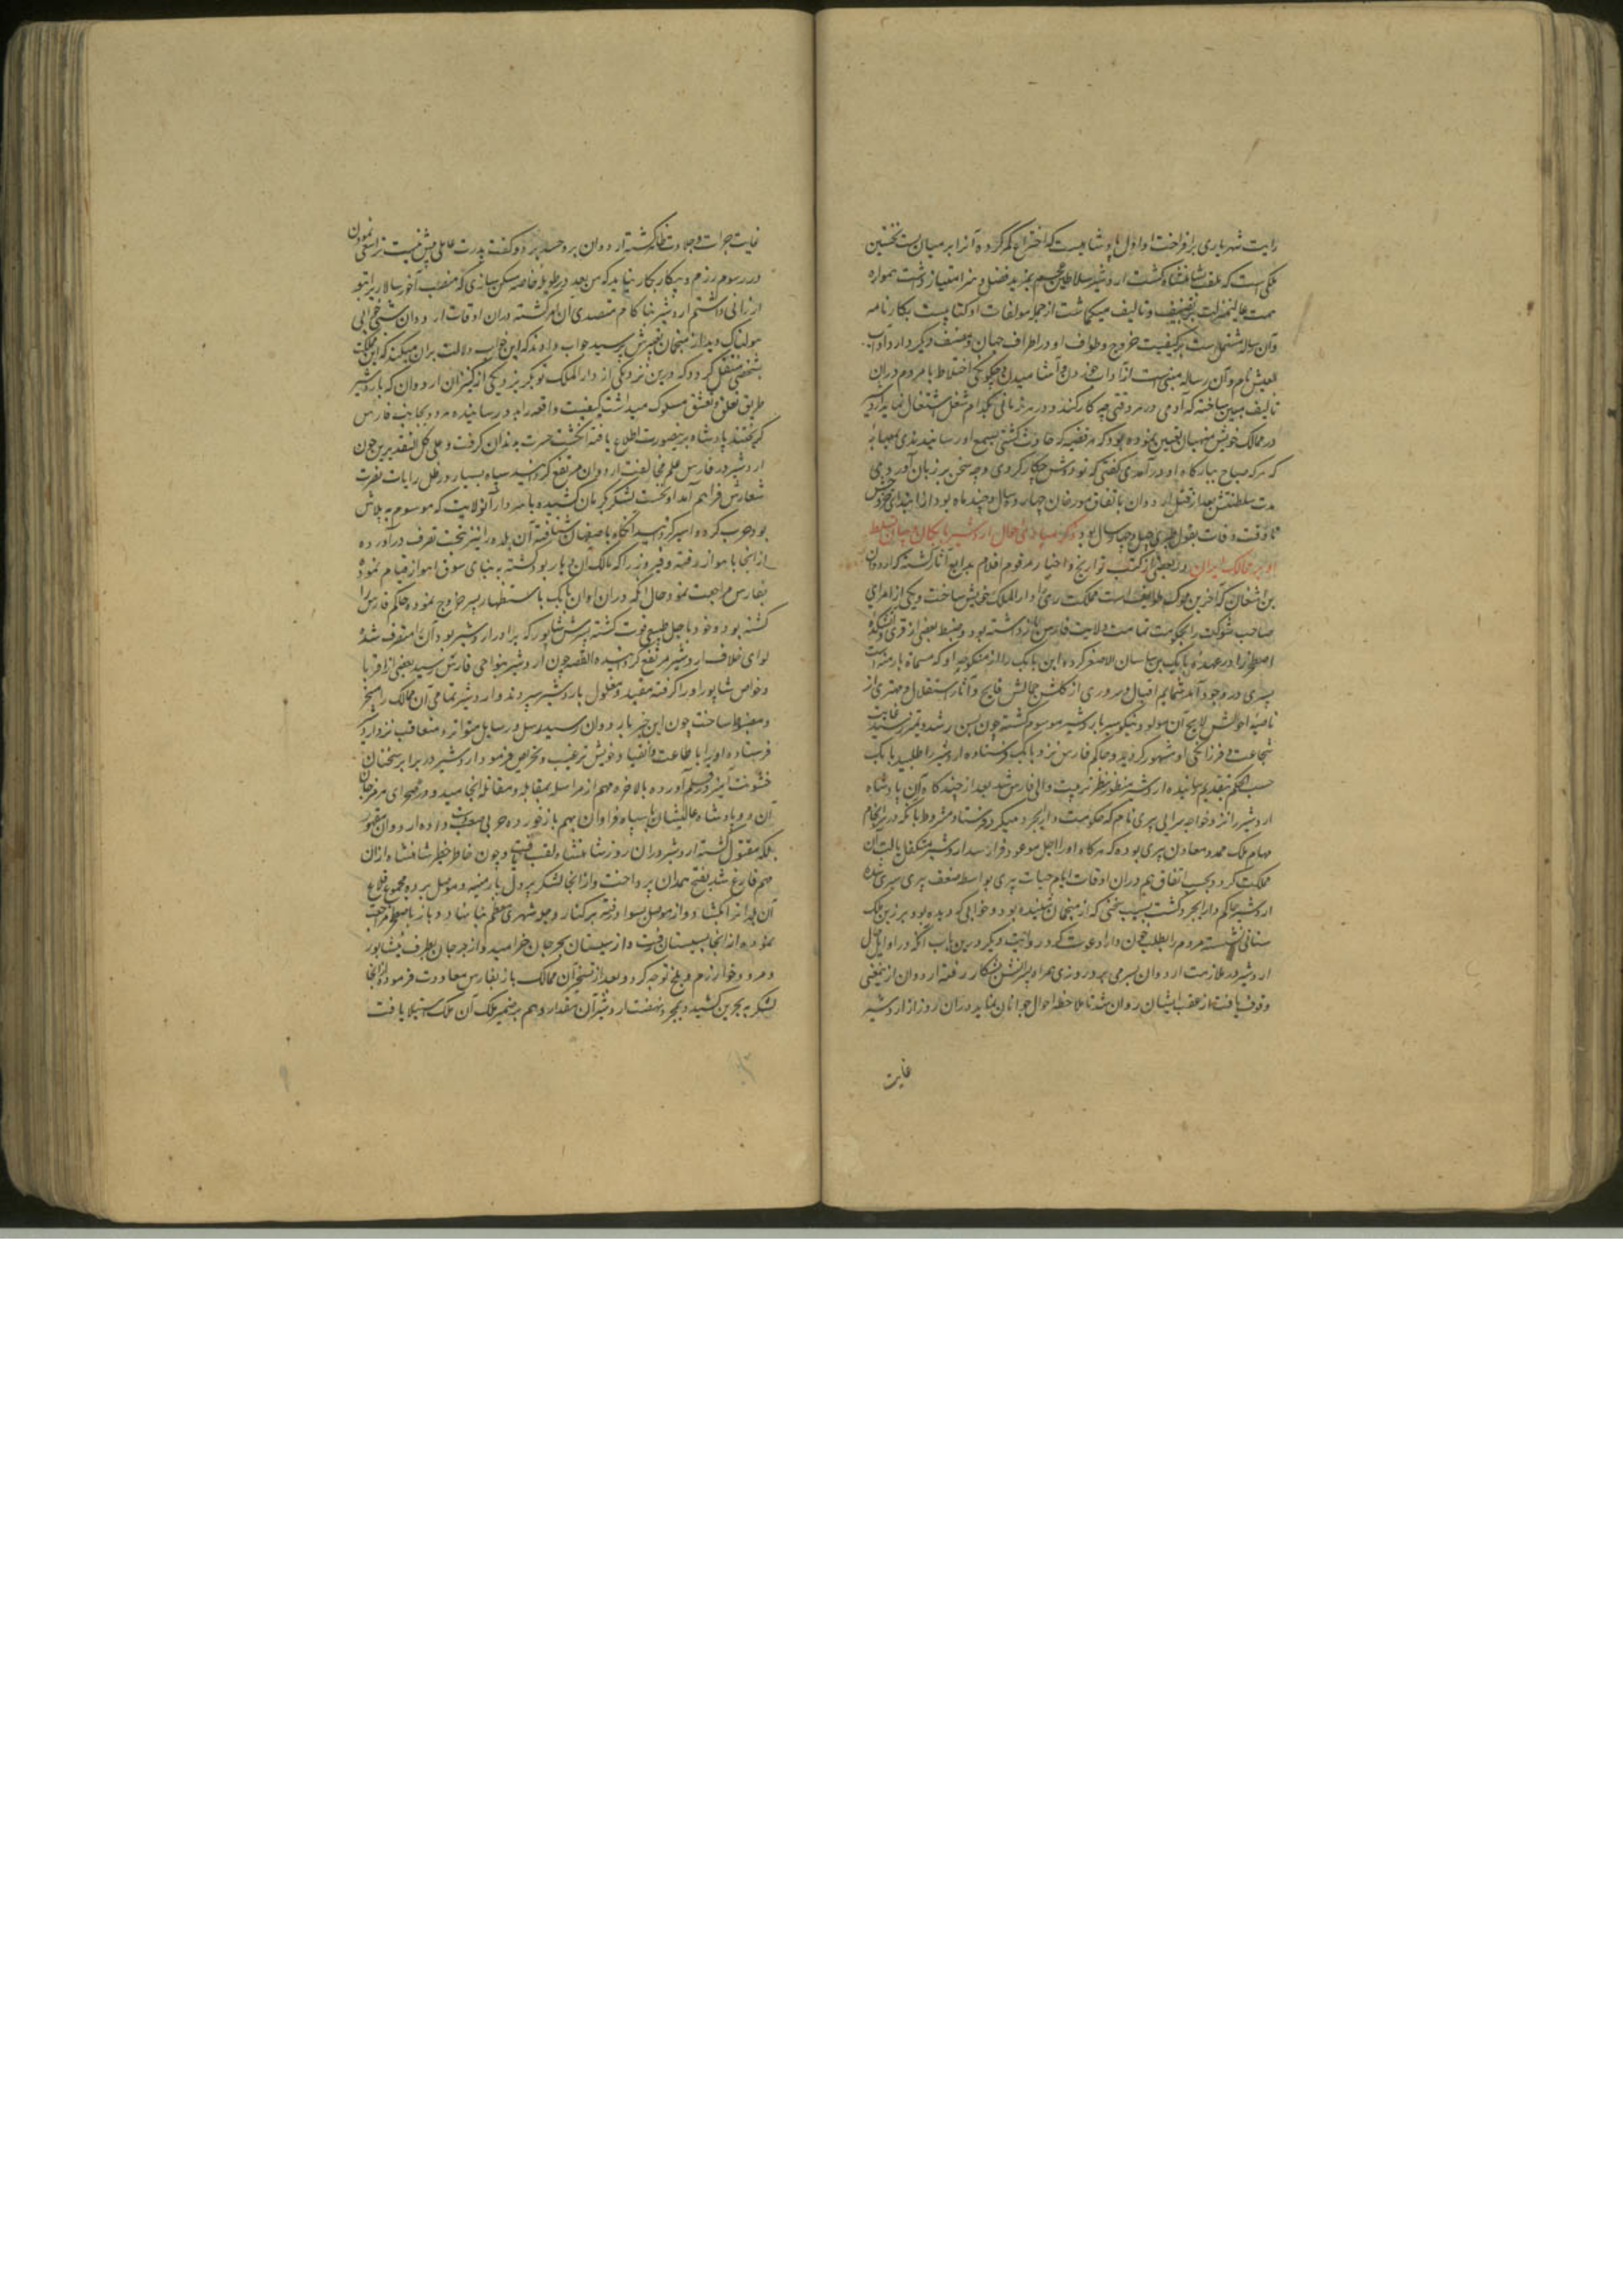 رایت شهریاری برافراخت و اول پادشاهیست که اختراع کمر کرده آنرا بر میان بست نخستین
ملکی است که بلقب شاهنشاه گشت اردشیر سلاطین عجم بمزید فضل و هنر امتیاز داشت همواره
همت عالینهمت بر تصنیف و تالیف میکماشت از جمله مولفات او کتابیست بکارنامه
و آن رساله مشتملست بر کیفیت خروج و طواف او در اطراف جهان و مصنف دیگر دارد آداب
العیش نام و آن رساله مبنی است از آداب خوردن و آشامیدن و چگونگی اختلاط با مردم در ان
تالیف مبین ساخته که آدمی در هر وقتی چه کار کند و در هر زمانی بکدام شغل اشتغال نماید اردشیر
در ممالک خویش منهیان تعیین نموده بود که هر قضیه که حادث گشتی بسمع او رسانیدندی
که هرکه صباح ببارگاه او در آمدی گفتی که تو دوش چکار کردی و چه سخن بر زبان آوردی
مدت سلطنتش بعد از قتل اردوان باتفاق مورخان چهارده سال و چند ماه بود از ابتدای خروج
تا وقت وفات بقول طبری چهل و چهار سال بود ذکر مبادی احوال اردشیر بابکان و بیان تسلط
او بر ممالک ایران در بعضی از کتب تواریخ و اخبار مرقوم اقلام بدایع آثار گشته که اردوان
بن اشغان که آخرین ملوک طوایف است مملکت ری را دار الملک خویش ساخت و یکی از امرای
صاحب شوکت را بحکومت تمامت ولایت فارس باز داشته بود و ضبط بعضی از قری و آتشکده
اصطخر را در عهده بابک بن ساسان الاصغر کرده این بابک را از منکوحه او که مسماة بارمینه داشت
پسری در وجود آمد شمایم اقبال و سروری از گلشن جمالش فایح و آثار استقلال و مهتری از
ناصیه احوالش لایح آن مولود نیکو سیر باردشیر موسوم گشته چون بسن رشد و تمیز رسید بغایت
شجاعت و فرزانگی او مشهور گردید و حاکم فارس نزد بابک فرستاده اردشیر را طلبید بابک
حسب الحکم بتقدیم رسانیده اردشیر منظور نظر تربیت والی فارس شد بعد از چندگاه آن پادشاه
اردشیر را نزد خواجه سرایی پیری نام که حکومت دارابجرد میکرد فرستاد مشروط بآنکه در سرانجام
مهام ملک ممد و معاون پیری بوده که هرگاه او را اجل موعود فرا رسد اردشیر متکفل ایالت آن
مملکت گردد بحسب اتفاق هم دران اوقات ایام حیات پیری بواسطه ضعف پیری سپری شده
اردشیر حاکم دارابجرد گشت بسبب سخنی که از منجمان شنیده بود و خوابی که دیده بود برزین ملک
ستانی نشسته مردم را بطلب خون دارا دعوت کرد و روایت دیگر درین باب آنکه در اوایل حال
اردشیر در ملازمت اردوان بسر می برد روزی همراه پسرانش بشکار رفته اردوان از ین معنی
وقوف یافت از عقب ایشان روان شد تا ملاحظه احوال جوانان نماید دران روز از اردشیر
غایت
غایت جرات و جلادت ظاهر گشته اردوان برو حسد برد و گفت پدرت عاملی بیش نیست ترا سعی نمودن
در رسوم رزم و پیکار بکار نیاید که من بعد در طویله خاصه مسکن سازی که منصب آخور سالاری را بتو
ارزانی داشتم اردشیر بناکام متصدی آن امر گشته دران اوقات اردوان شبی خوابی
هولناک دید از منجمان تعبیرش پرسید جواب دادند که این خواب دلالت بران میکند که این مملکت
بشخصی منتقل گردد که درین نزدیکی از دار الملک تو بگریزد و یکی از کنیزان اردوان که باردشیر
طریق تعلق و تعشق مسلوک میداشت کیفیت واقعه را بدو رسانیده هر دو بجانب فارس
گریختند پادشاه برینصورت اطلاع یافته انگشت حسرت بدندان گرفت و علی کل التقدیرین چون
اردشیر در فارس علم مخالفت اردوان مرتفع گردانید سپاه بسیار در ظل رایات نصرت
شعارش فراهم آمد او نخست لشکر بکرمان کشیده با سردار آنولایت که موسوم به بلاش
بود حرب کرده اسیر گردانید آنگاه باصفهان شتافته آن بلده را نیز بتحت تصرف در آورده
از انجا باهواز رفته و فیروز را که مالک آن دیار بود کشته به بنای سوق اهواز قیام نموده
بفارس مراجعت نمود و حال آنکه دران اوان بابک باستظهار پسر خروج نموده حاکم فارس را
کشته بود و خود باجل طبیعی فوت گشته پسرش شاپور که برادر اردشیر بود آنرا متصرف شده
لوای خلاف اردشیر مرتفع گردانیده القصه چون اردشیر بنواحی فارس رسید بعضی از اقربا
و خواص شاپور او را گرفته مقید و مغلول باردشیر سپردند و اردشیر تمامی آن ممالک را مسخر
و مضبوط ساخت چون این خبر باردوان رسید رسل و رسایل متواتر و متعاقب نزد اردشیر
فرستاده او را باطاعت و انقیاد خویش ترغیب و تحریص فرمود اردشیر در برابر سخنان
خشونت آمیز در قلم آورده بالاخره مهم از مراسله بمقابله و مقاتله انجامید و در صحرای هرمزجان
آن دو پادشاه عالیشان با سپاه فراوان بهم باز خورده حربی صعب دست داده اردوان مقهور
بلکه مقتول گشته اردشیر دران روز شاهنشاه لقب یافت و چون خاطر خطیر شاهنشاه از ان
مهم فارغ شد بفتح همدان پرداخت و از انجا لشکر بر دیار ارمنیه و موصل برده مجموع قلاع
آن بلدانرا بگشاد و از موصل بسواد رفته بر کنار دجله شهری معظم بنا نهاد و باز باصطخر مراجعت
نموده از انجا بسیستان رفت و از سیستان بجرجان خرامید و از جرجان بطرف نیشابور
و مرو و خوارزم و بلخ توجه کرد و بعد از تسخیر آن ممالک باز بفارس معاودت فرمود از انجا
لشکر به بحرین کشید و بمجرد نهضت اردشیر آن مقدار وهم بر ضمیر ملک آن ملک استیلا یافت